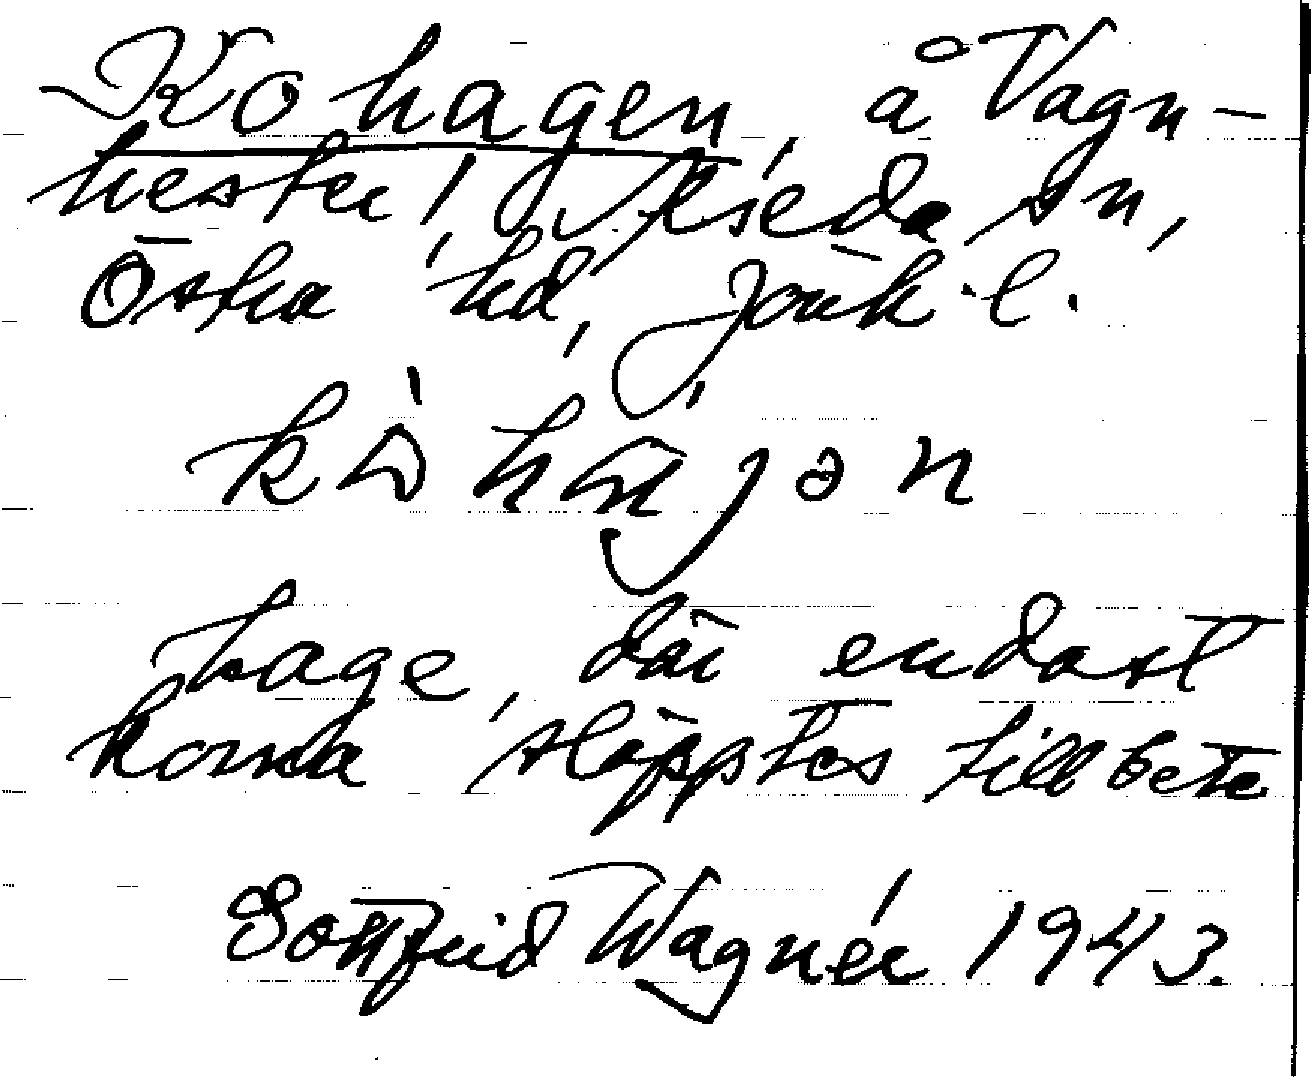 Kohagen, å Vagn-
hester, Nye sn,
Östra hd, Jönk.l.
hage, där endast
korna släpptes till bete
Gottfrid Wagnér 1943.